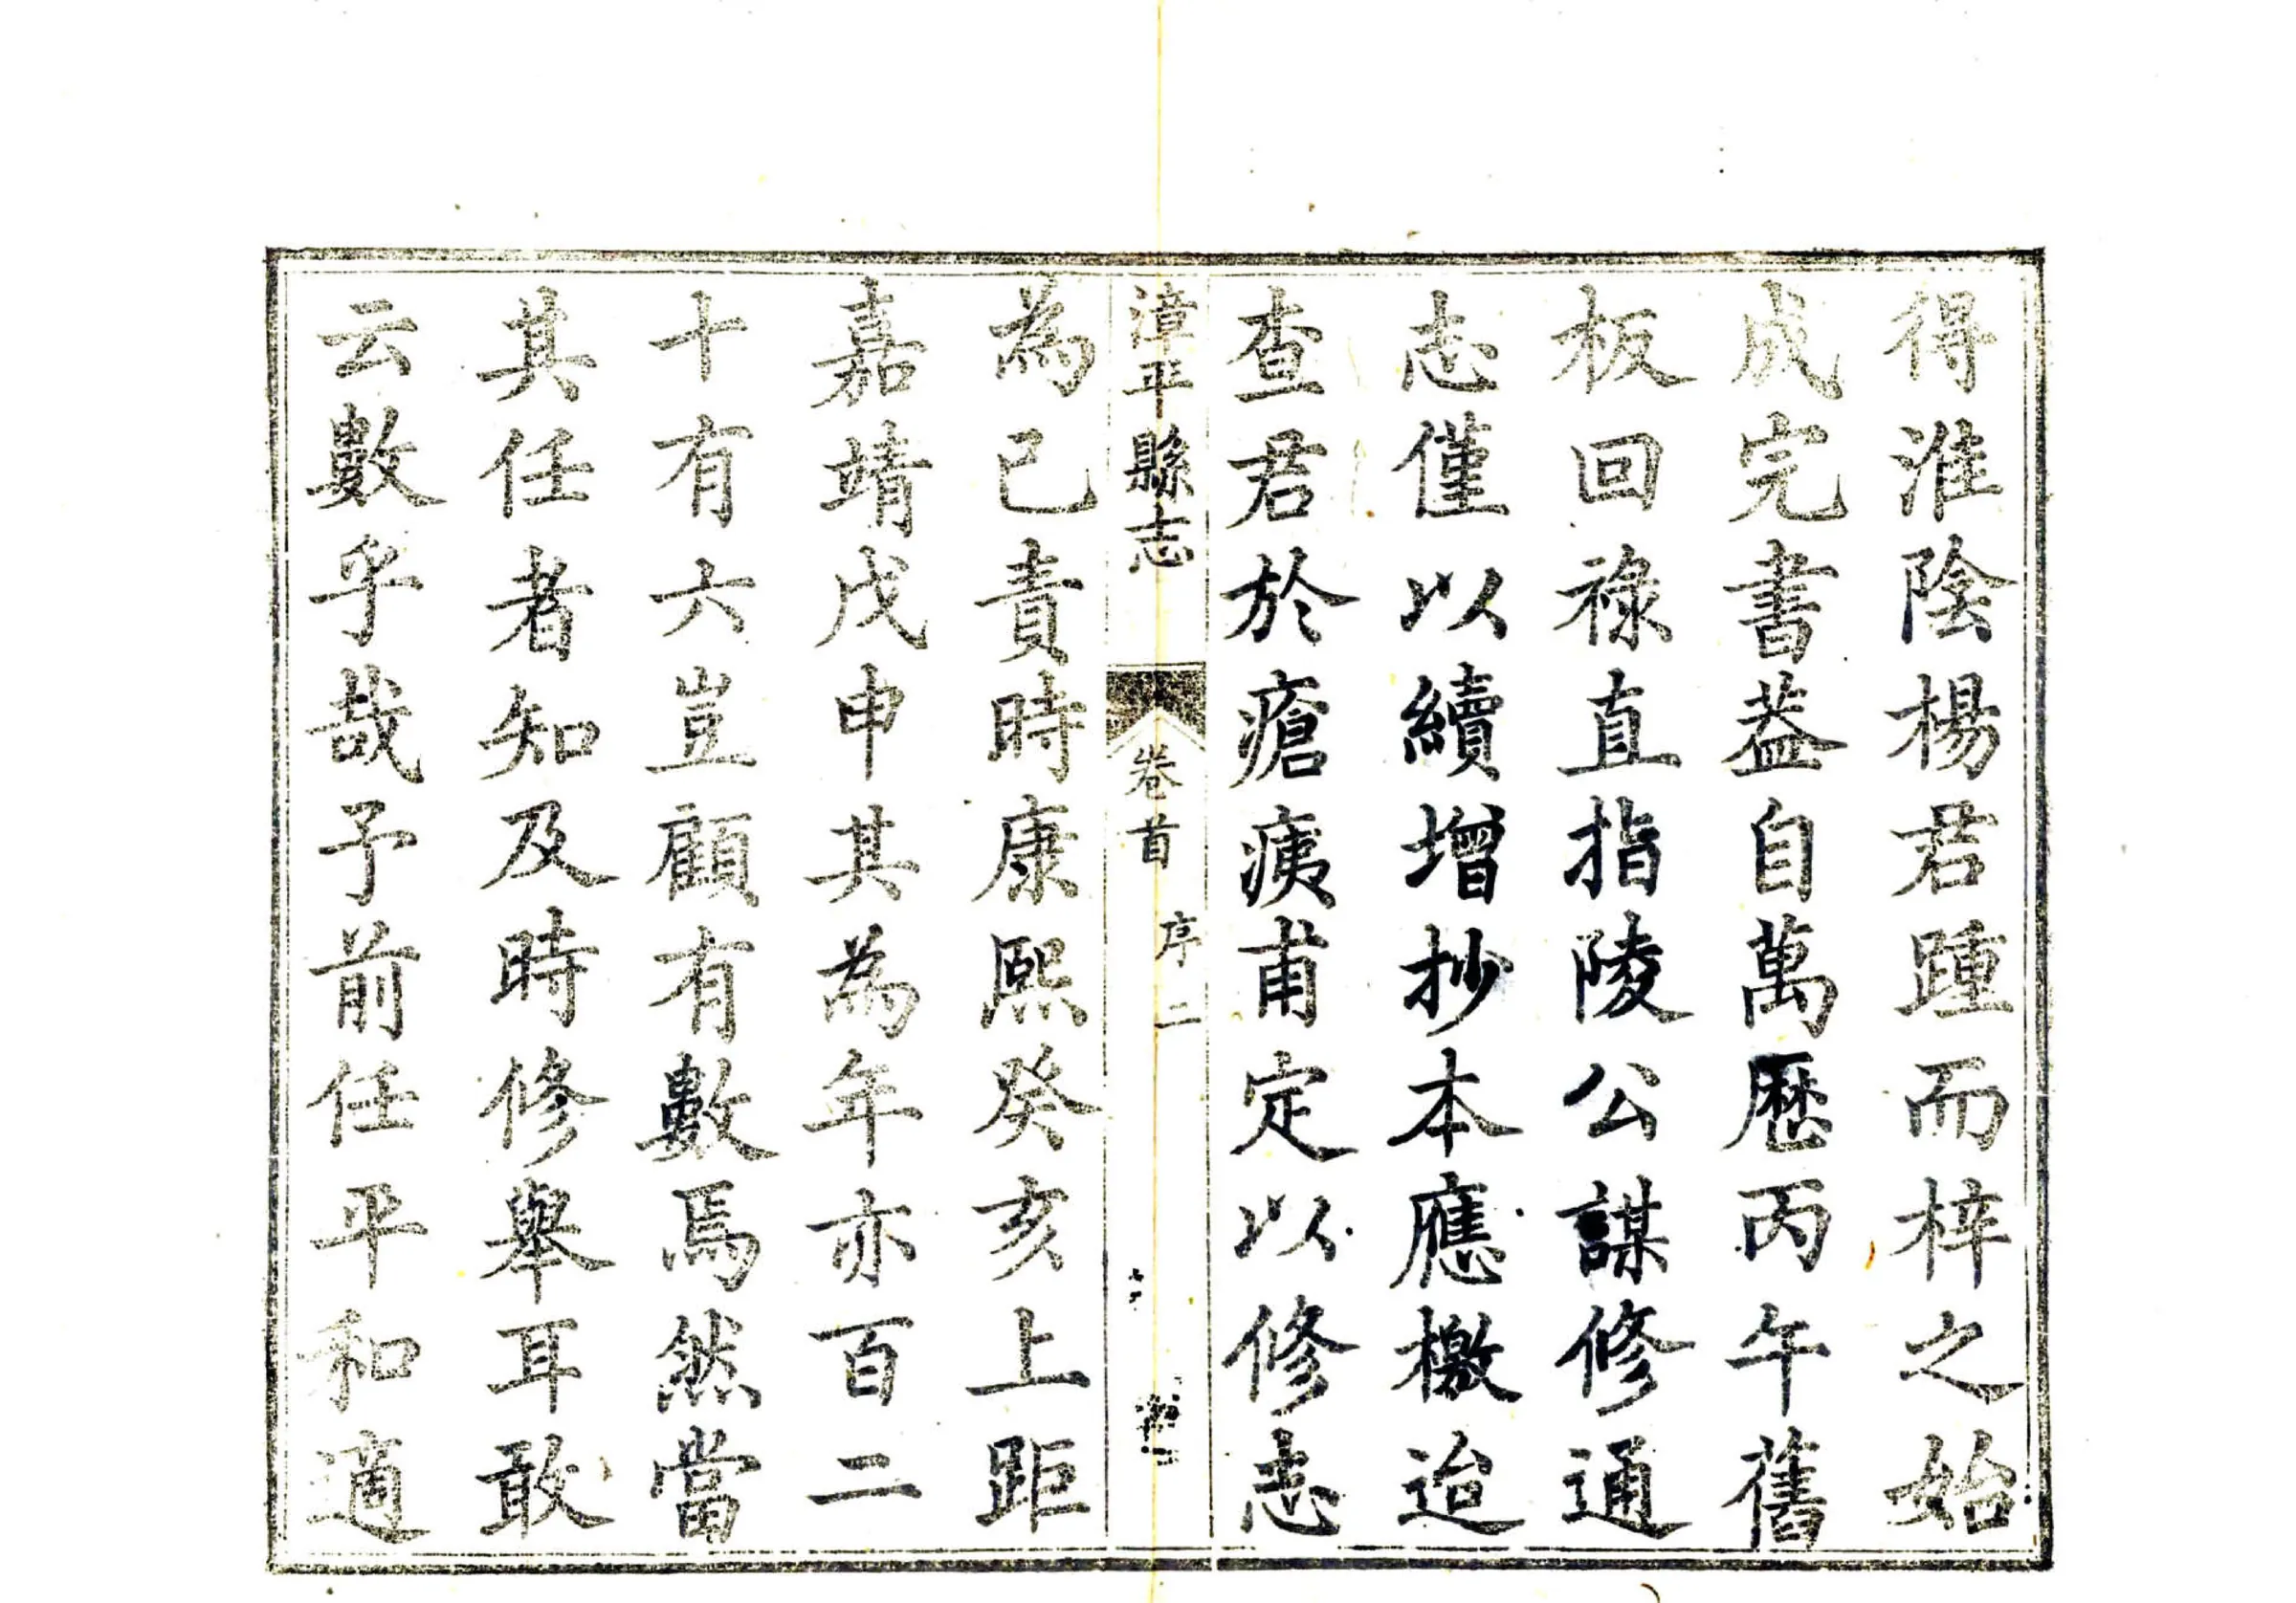 得淮陰楊君踵而梓之始
成完書葢自萬歷丙午舊
板回祿直指陵公謀修通
志僅以續增抄本應檄迨
查君於瘡痍甫定以修志
漳平縣志
卷首
序
二
為已責時康熙癸亥上距
嘉靖戊申其為年亦百二
十有六豈顧有數焉然當
其任者知及時修舉耳敢
云數乎哉予前任平和適